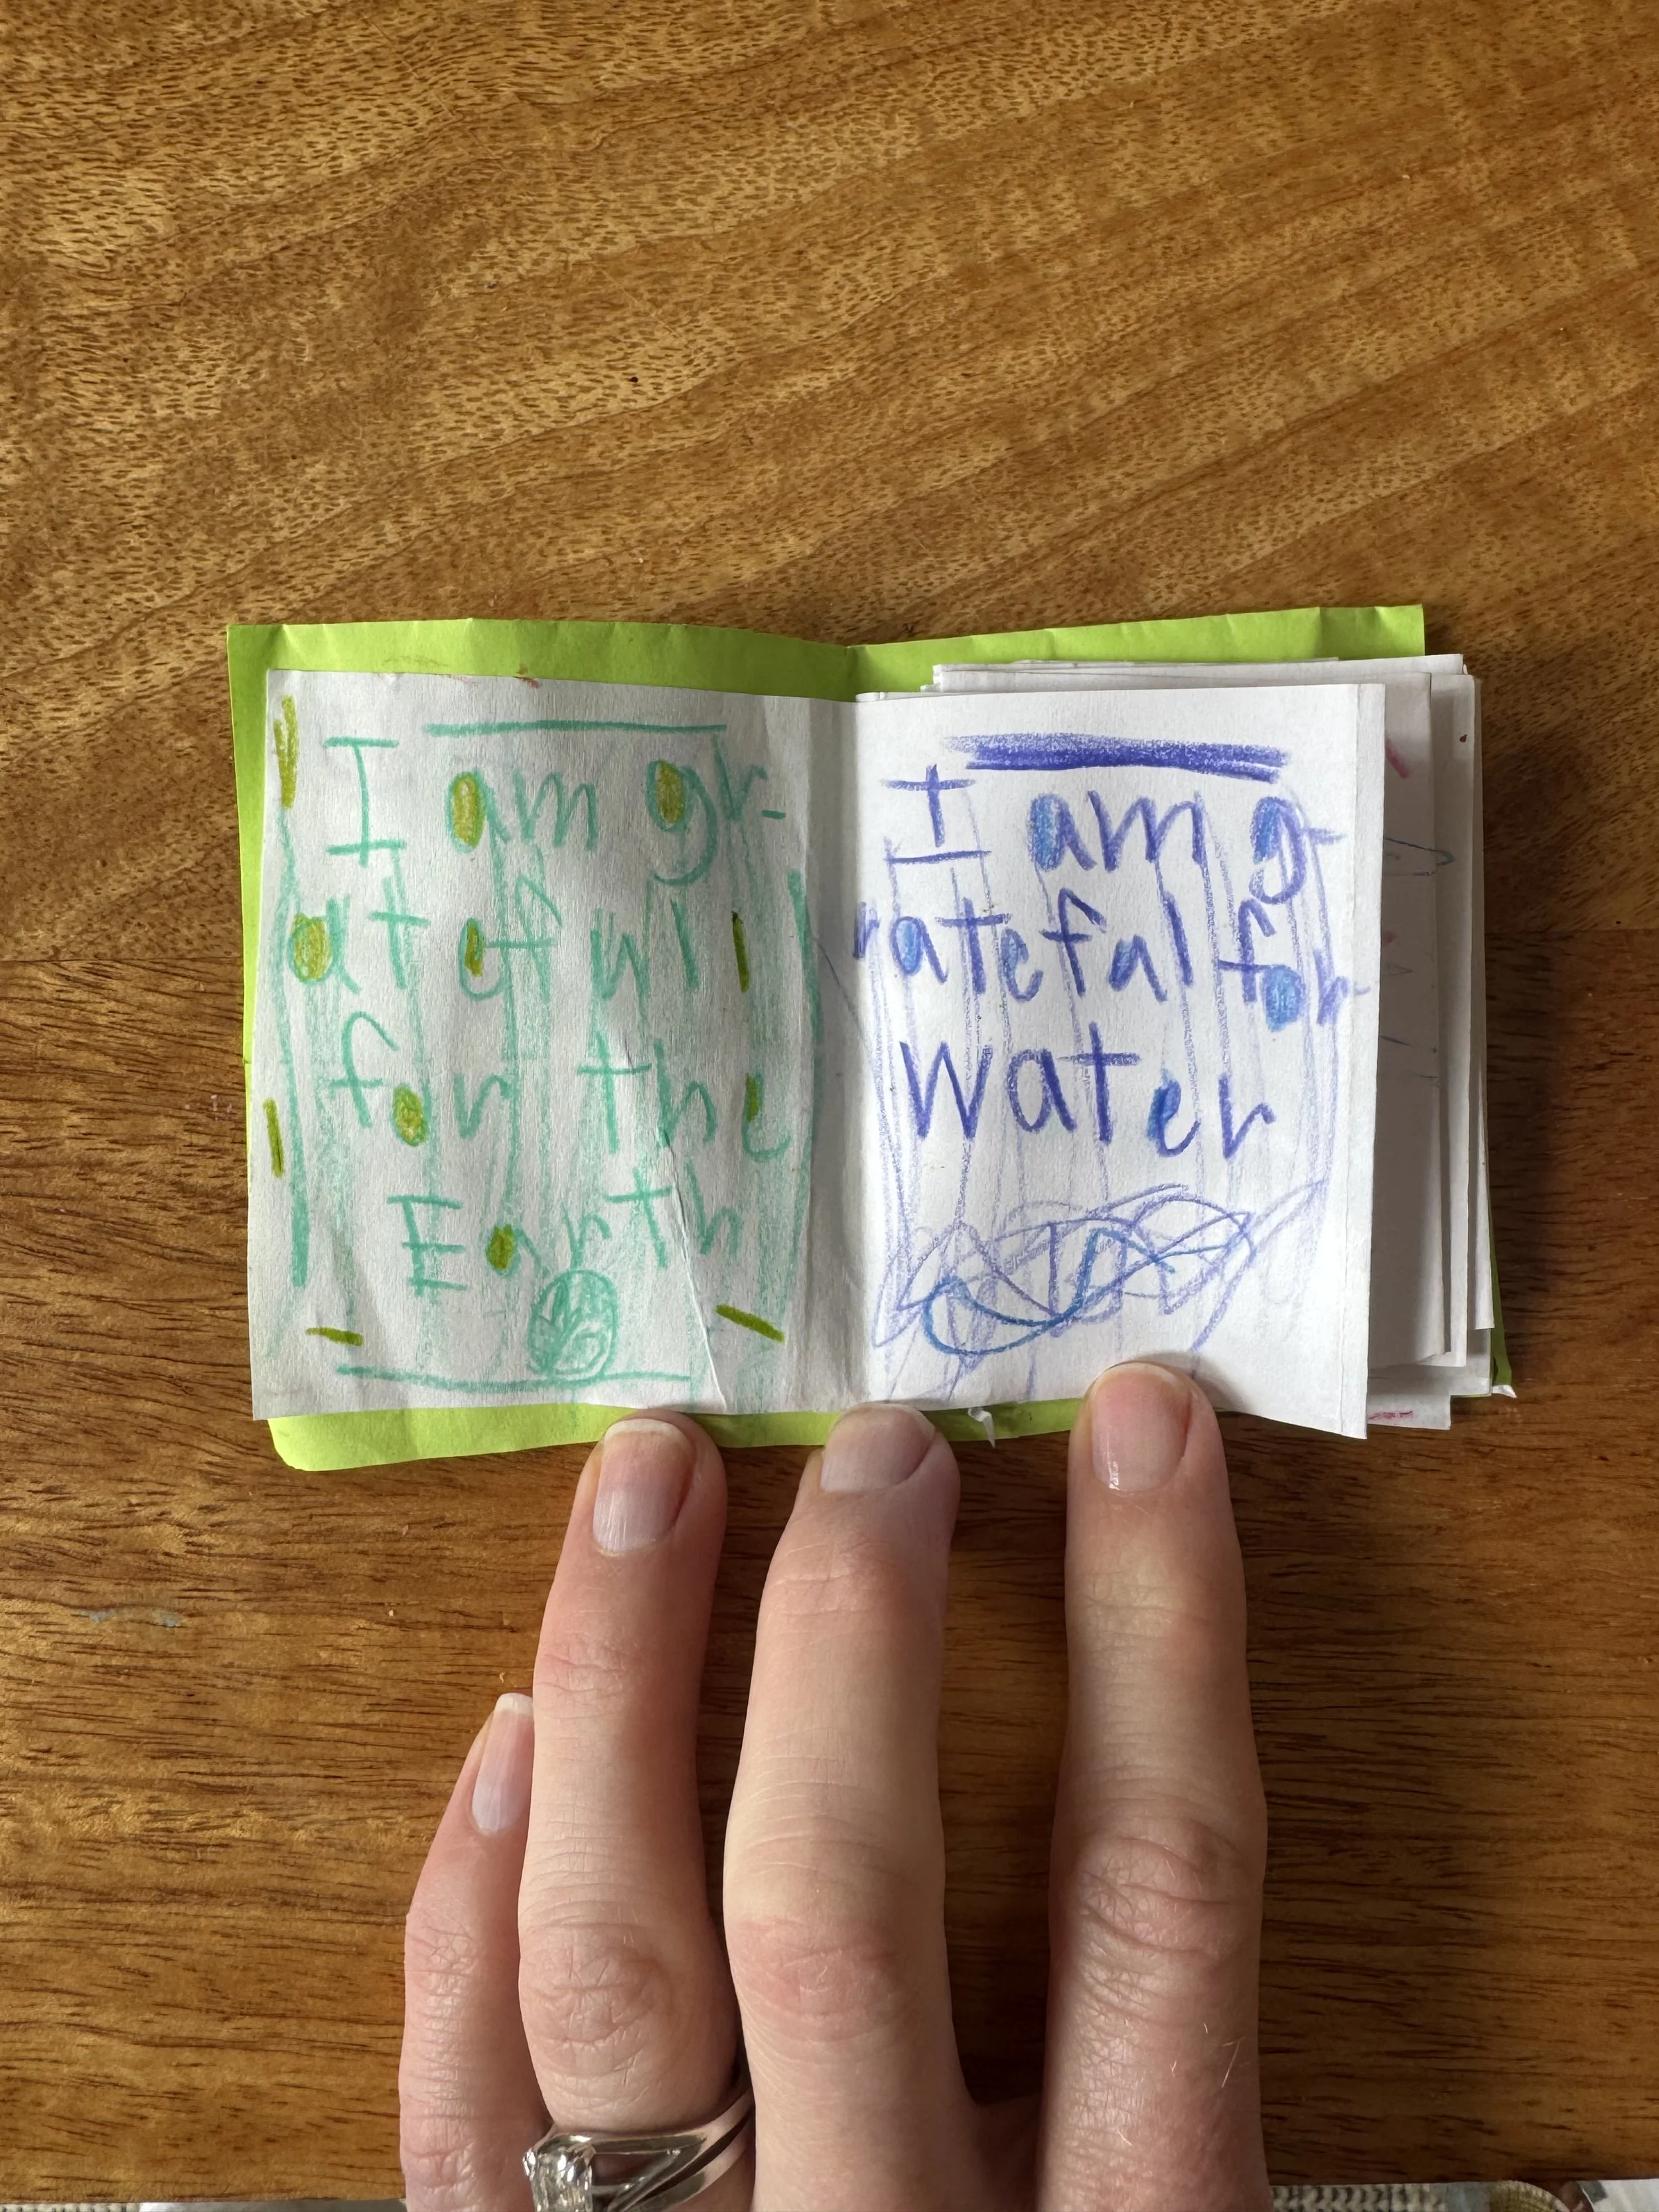 I am gr-
ateful
for the
Earth
I am g-
rateful for
water